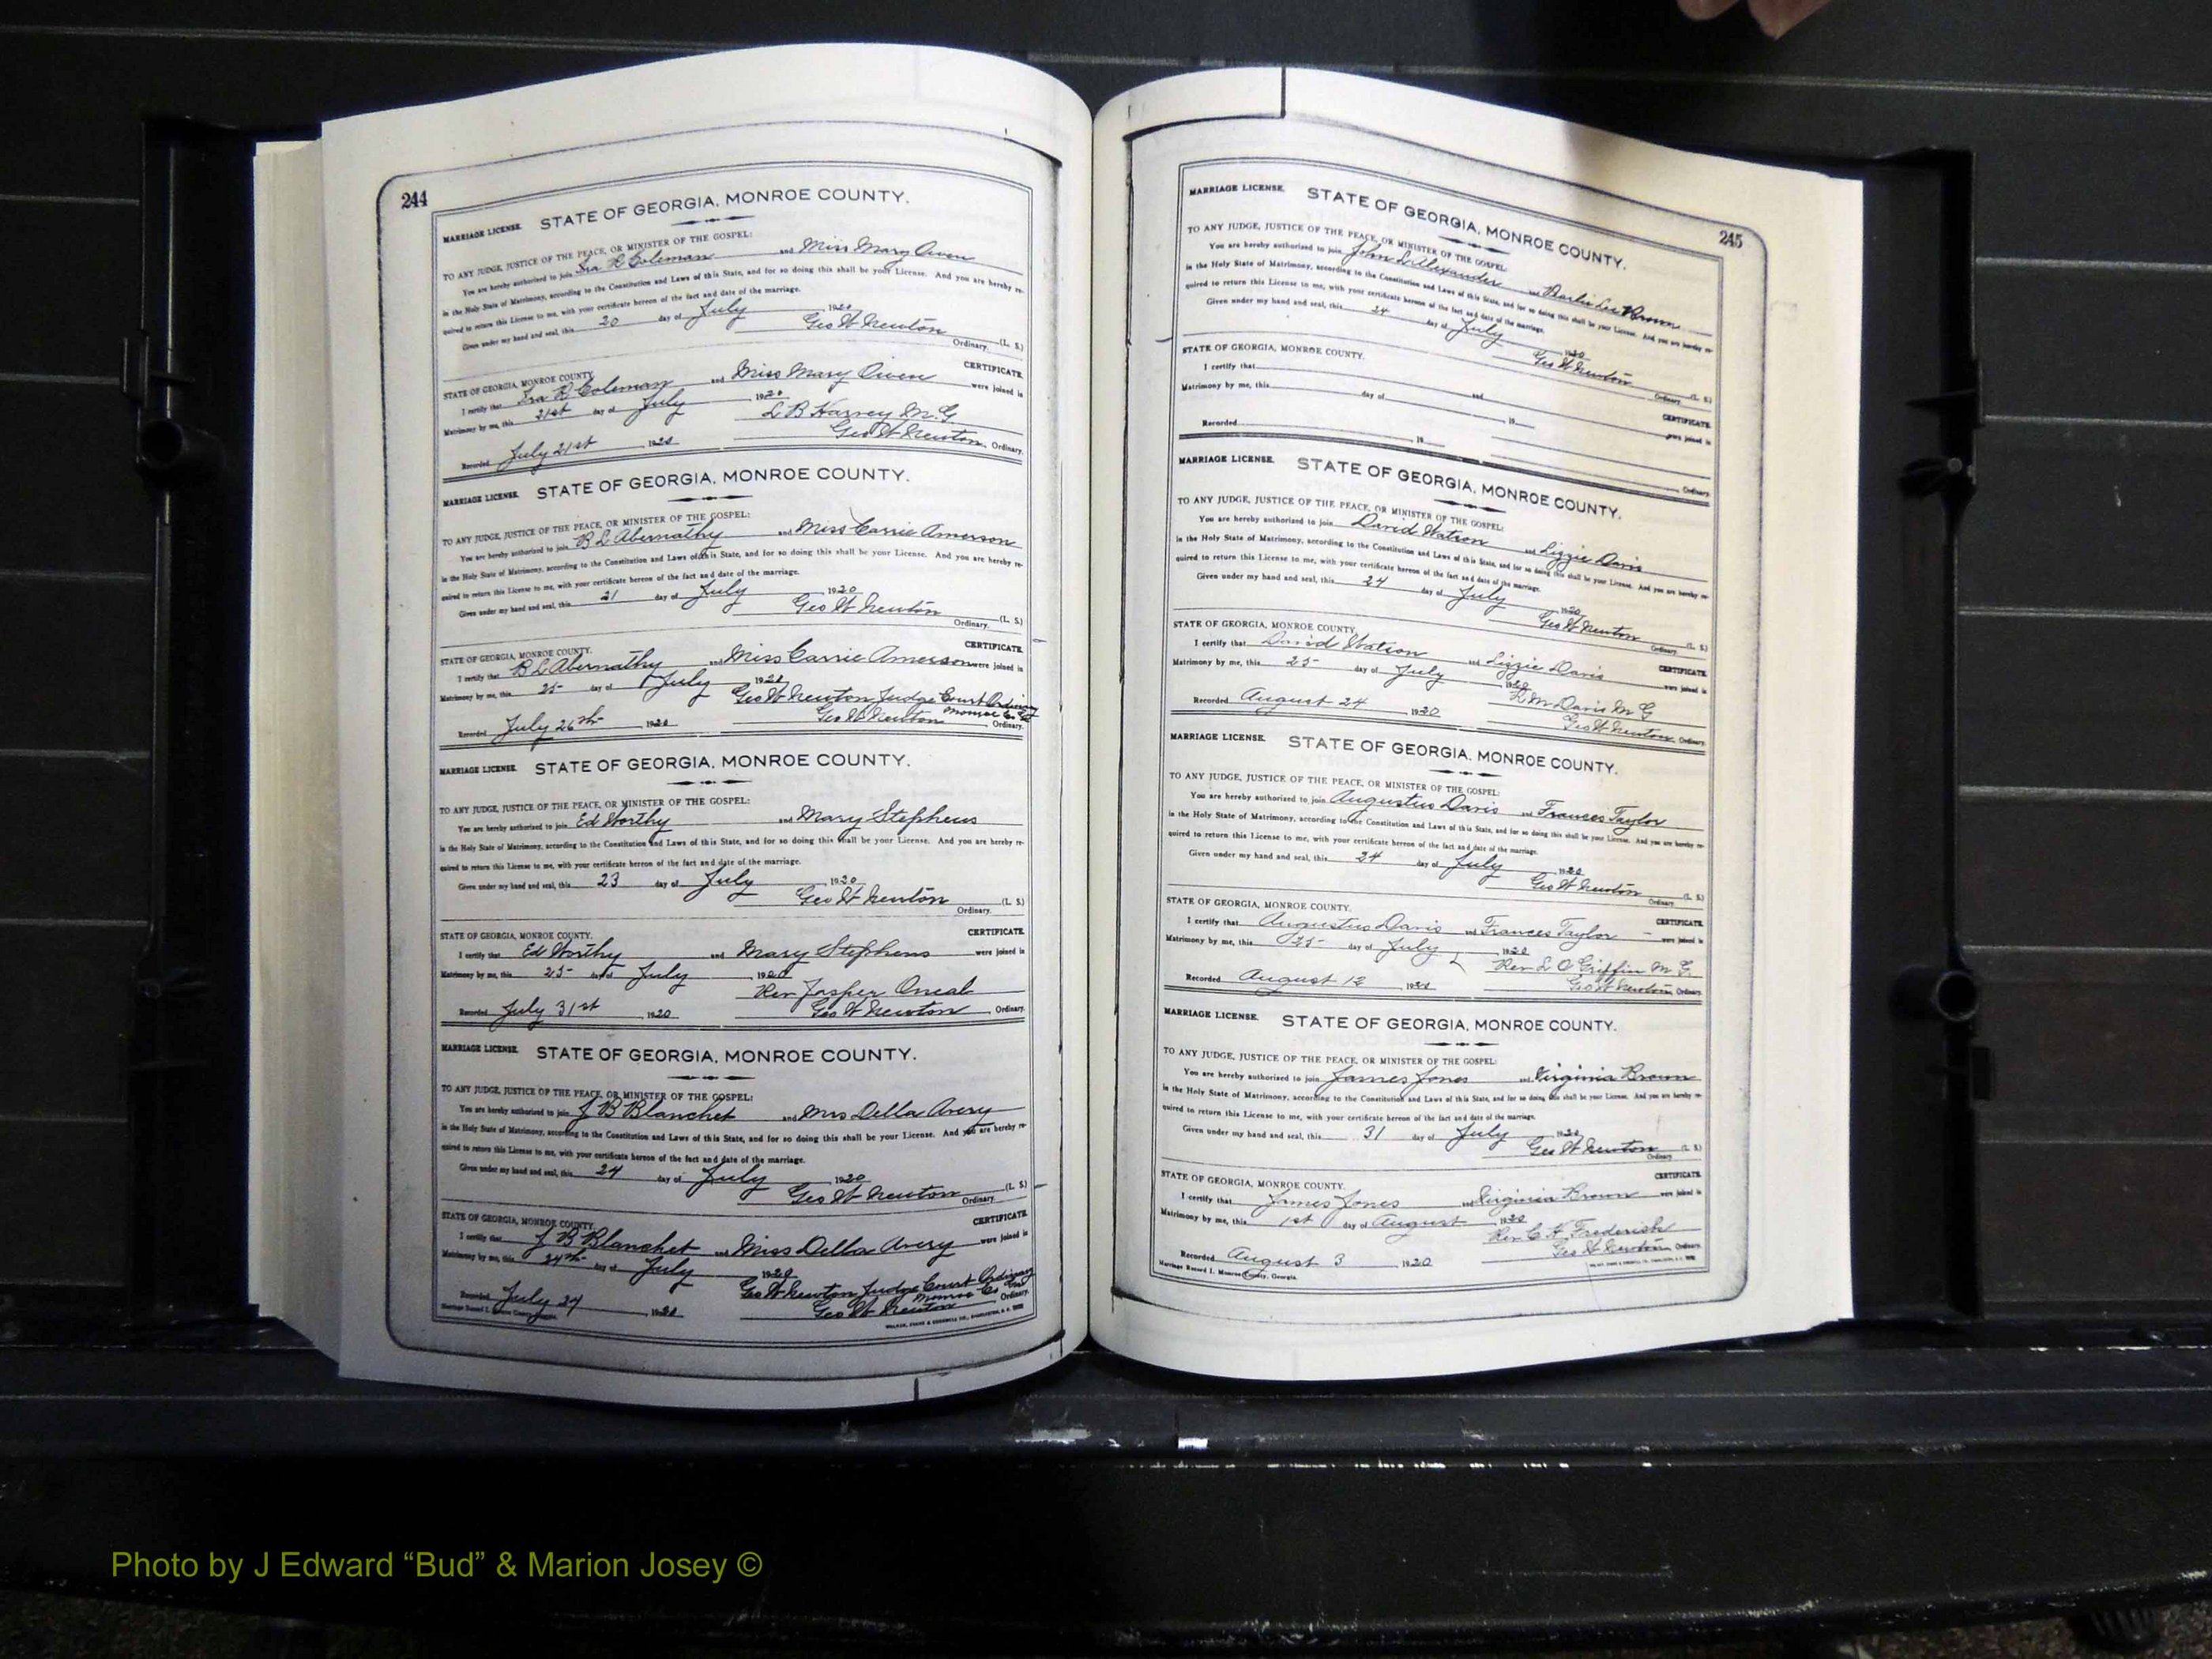 244
MARRIAGE LICENSE. STATE OF GEORGIA, MONROE COUNTY.
TO ANY JUDGE, JUSTICE OF THE PEACE, OR MINISTER OF THE GOSPEL:
You are hereby authorized to join Ira R Coleman and Miss Mary Owen
in the Holy State of Matrimony, according to the Constitution and Laws of this State, and for so doing this shall be your License. And you are hereby re-
quired to return this License to me, with your certificate hereon of the fact and date of the marriage.
Given under my hand and seal, this 20 day of July, 1920
Geo W Newton (L. S.)
Ordinary.
STATE OF GEORGIA, MONROE COUNTY. CERTIFICATE.
I certify that Ira R Coleman and Miss Mary Owen were joined in
Matrimony by me, this 21st day of July, 1920
L B Harvey M. G
Recorded July 21st 1920 Geo W Newton, Ordinary.
MARRIAGE LICENSE. STATE OF GEORGIA, MONROE COUNTY.
TO ANY JUDGE, JUSTICE OF THE PEACE, OR MINISTER OF THE GOSPEL:
You are hereby authorized to join B L Abernathy and Miss Carrie Amerson
in the Holy State of Matrimony, according to the Constitution and Laws of this State, and for so doing this shall be your License. And you are hereby re-
quired to return this License to me, with your certificate hereon of the fact and date of the marriage.
Given under my hand and seal, this 21 day of July, 1920
Geo W Newton (L. S.)
Ordinary.
STATE OF GEORGIA, MONROE COUNTY. CERTIFICATE.
I certify that B L Abernathy and Miss Carrie Amerson were joined in
Matrimony by me, this 25 day of July, 1920
Geo W Newton Judge Court Ordinary
Monroe Co Ga
Recorded July 26th 1920 Geo W Newton Ordinary.
MARRIAGE LICENSE. STATE OF GEORGIA, MONROE COUNTY.
TO ANY JUDGE, JUSTICE OF THE PEACE, OR MINISTER OF THE GOSPEL:
You are hereby authorized to join Ed Worthy and Mary Stephens
in the Holy State of Matrimony, according to the Constitution and Laws of this State, and for so doing this shall be your License. And you are hereby re-
quired to return this License to me, with your certificate hereon of the fact and date of the marriage.
Given under my hand and seal, this 23 day of July, 1920
Geo W Newton (L. S.)
Ordinary.
STATE OF GEORGIA, MONROE COUNTY. CERTIFICATE.
I certify that Ed Worthy and Mary Stephens were joined in
Matrimony by me, this 25 day of July, 1920
Rev Jasper Oneal
Recorded July 31st, 1920 Geo W Newton, Ordinary.
MARRIAGE LICENSE. STATE OF GEORGIA, MONROE COUNTY.
TO ANY JUDGE, JUSTICE OF THE PEACE, OR MINISTER OF THE GOSPEL:
You are hereby authorized to join J B Blanchet and Mrs Della Avery
in the Holy State of Matrimony, according to the Constitution and Laws of this State, and for so doing this shall be your License. And you are hereby re-
quired to return this License to me, with your certificate hereon of the fact and date of the marriage.
Given under my hand and seal, this 24 day of July, 1920
Geo W Newton (L. S.)
Ordinary.
STATE OF GEORGIA, MONROE COUNTY. CERTIFICATE.
I certify that J B Blanchet and Miss Della Avery were joined in
Matrimony by me, this 24th day of July, 1920
Geo W Newton Judge Court Ordinary
Monroe Co Ga
Recorded July 24, 1920 Geo W Newton Ordinary.
245
MARRIAGE LICENSE. STATE OF GEORGIA, MONROE COUNTY.
TO ANY JUDGE, JUSTICE OF THE PEACE, OR MINISTER OF THE GOSPEL:
You are hereby authorized to join John L Alexander and Lee Brown
in the Holy State of Matrimony, according to the Constitution and Laws of this State, and for so doing this shall be your License. And you are hereby re-
quired to return this License to me, with your certificate hereon of the fact and date of the marriage.
Given under my hand and seal, this 24 day of July, 1920
Geo W Newton (L. S.)
Ordinary.
STATE OF GEORGIA, MONROE COUNTY. CERTIFICATE.
I certify that and were joined in
Matrimony by me, this day of, 19
Recorded, 19 Ordinary.
MARRIAGE LICENSE. STATE OF GEORGIA, MONROE COUNTY.
TO ANY JUDGE, JUSTICE OF THE PEACE, OR MINISTER OF THE GOSPEL:
You are hereby authorized to join David Watson and Lizzie Davis
in the Holy State of Matrimony, according to the Constitution and Laws of this State, and for so doing this shall be your License. And you are hereby re-
quired to return this License to me, with your certificate hereon of the fact and date of the marriage.
Given under my hand and seal, this 24 day of July, 1920
Geo W Newton (L. S.)
Ordinary.
STATE OF GEORGIA, MONROE COUNTY. CERTIFICATE.
I certify that David Watson and Lizzie Davis were joined in
Matrimony by me, this 25 day of July, 1920
R M Davis M G
Recorded August 24, 1920 Geo W Newton, Ordinary.
MARRIAGE LICENSE. STATE OF GEORGIA, MONROE COUNTY.
TO ANY JUDGE, JUSTICE OF THE PEACE, OR MINISTER OF THE GOSPEL:
You are hereby authorized to join Augustus Davis and Frances Taylor
in the Holy State of Matrimony, according to the Constitution and Laws of this State, and for so doing this shall be your License. And you are hereby re-
quired to return this License to me, with your certificate hereon of the fact and date of the marriage.
Given under my hand and seal, this 24 day of July, 1920
Geo W Newton (L. S.)
Ordinary.
STATE OF GEORGIA, MONROE COUNTY. CERTIFICATE.
I certify that Augustus Davis and Frances Taylor were joined in
Matrimony by me, this 25 day of July, 1920
Rev L O Griffin M G.
Recorded August 12, 1920 Geo W Newton, Ordinary.
MARRIAGE LICENSE. STATE OF GEORGIA, MONROE COUNTY.
TO ANY JUDGE, JUSTICE OF THE PEACE, OR MINISTER OF THE GOSPEL:
You are hereby authorized to join James Jones and Virginia Brown
in the Holy State of Matrimony, according to the Constitution and Laws of this State, and for so doing this shall be your License. And you are hereby re-
quired to return this License to me, with your certificate hereon of the fact and date of the marriage.
Given under my hand and seal, this 31 day of July, 1920
Geo W Newton (L. S.)
Ordinary.
STATE OF GEORGIA, MONROE COUNTY. CERTIFICATE.
I certify that James Jones and Virginia Brown were joined in
Matrimony by me, this 1st day of August, 1920
Rev C H Frederick
Recorded August 3, 1920 Geo W Newton, Ordinary.
Marriage Record I. Monroe County, Georgia.
Photo by J Edward “Bud” & Marion Josey ©